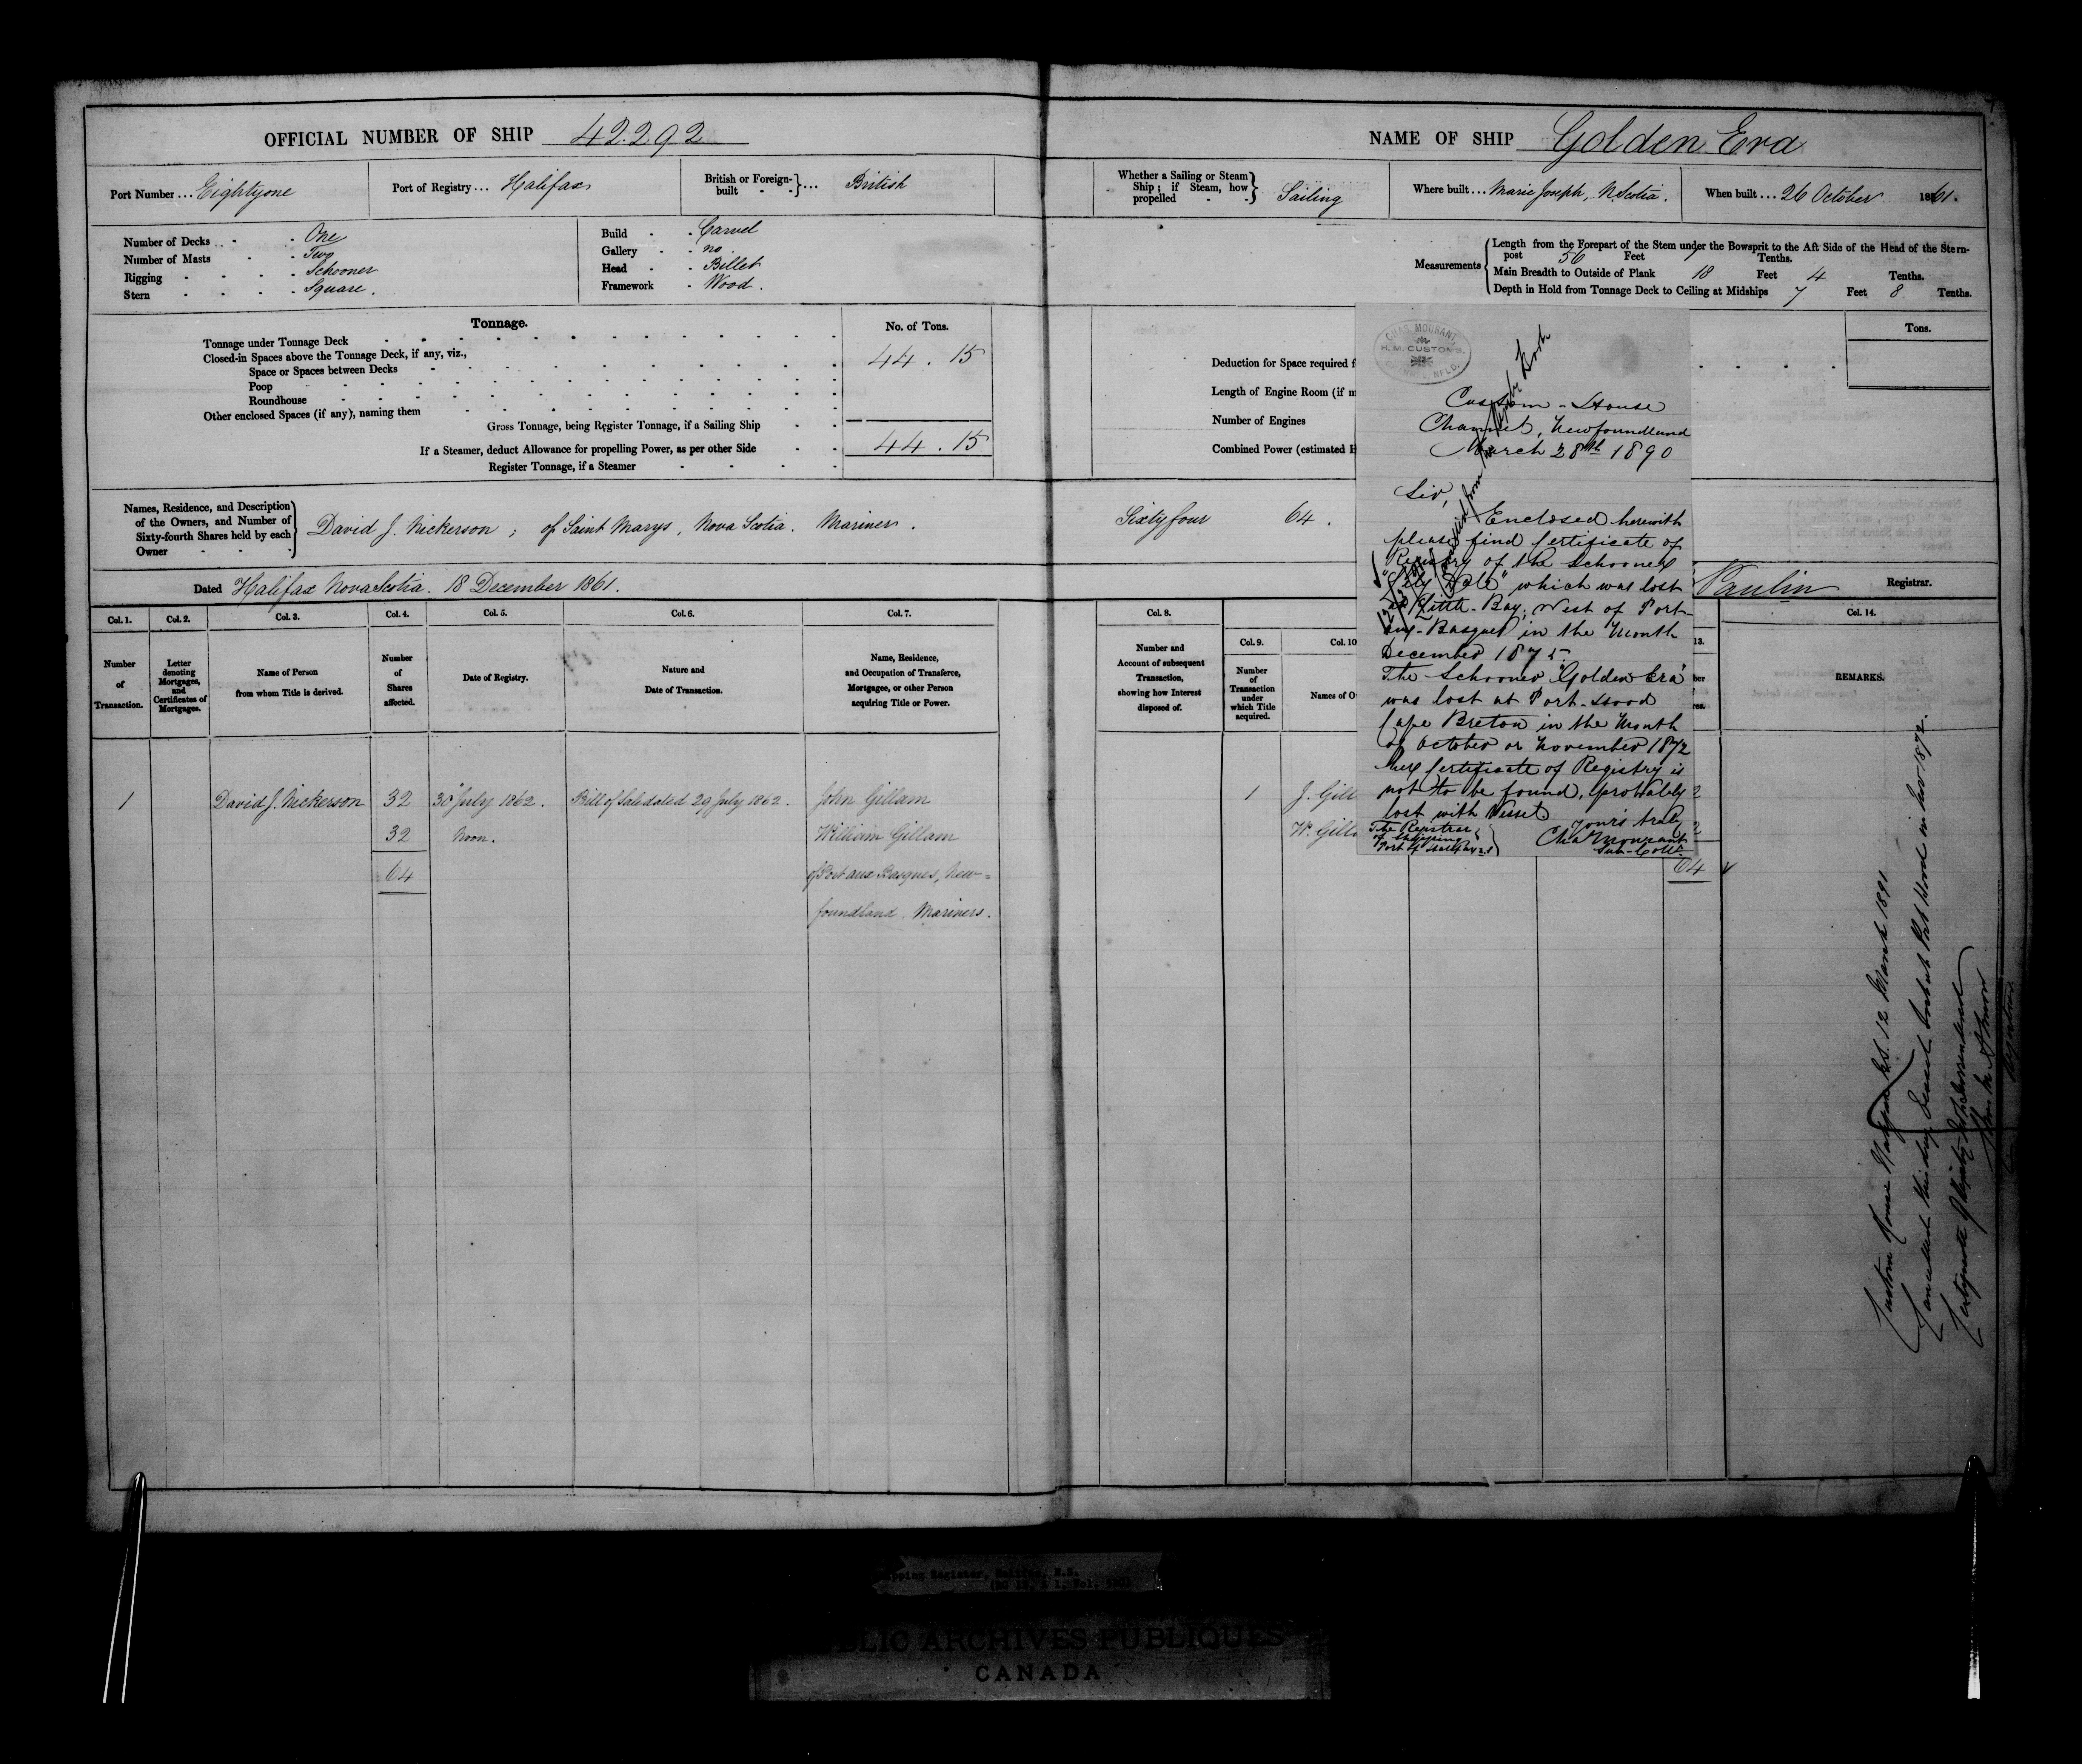 OFFICIAL NUMBER OF SHIP 42.292
NAME OF SHIP Golden Era
Port Number ... Eightyone
Port of Registry ... Halifax
British or Foreign-built - - } ... British
Whether a Sailing or Steam Ship; if Steam, how propelled - - } Sailing
Where built ... Marie Joseph, N. Scotia.
When built ... 26 October 1861.
Number of Decks - - One
Number of Masts - - Two
Rigging - - - - Schooner
Stern - - - - Square.
Build - - Carvel
Gallery - - no.
Head - - Billet
Framework - Wood.
Measurements
Length from the Forepart of the Stem under the Bowsprit to the Aft Side of the Head of the Stern-
post 56 Feet 7 Tenths.
Main Breadth to Outside of Plank 18 Feet 4 Tenths.
Depth in Hold from Tonnage Deck to Ceiling at Midships 7 Feet 8 Tenths.
Tonnage.
No. of Tons.
Tonnage under Tonnage Deck
Closed-in Spaces above the Tonnage Deck, if any, viz., 44.15
Space or Spaces between Decks
Poop
Roundhouse
Other enclosed Spaces (if any), naming them
Gross Tonnage, being Register Tonnage, if a Sailing Ship
If a Steamer, deduct Allowance for propelling Power, as per other Side 44.15
Register Tonnage, if a Steamer
Tons.
Deduction for Space required f
Length of Engine Room (if m
Number of Engines
Combined Power (estimated H
Names, Residence, and Description
of the Owners, and Number of
Sixty-fourth Shares held by each
Owner
David J. Nickerson; of Saint Marys, Nova Scotia. Mariner. Sixty four 64.
Dated Halifax Nova Scotia. 18 December 1861.
Paulin Registrar.
CHAS. MOURANT
H.M. CUSTOMS
NFLD.
Custom-House
Channel, Newfoundland
March 28th 1890
Sir,
Enclosed herewith
please find Certificate of
Registry of the Schooner
"Lily Dale" which was lost
at Little-Bay, West of Port-
aux-Basques in the Month
December 1875.
The Schooner "Golden Era"
was lost at Port-Hood
Cape Breton in the Month
of October or November 1872
her Certificate of Registry is
not to be found, probably
lost with Vessel
Yours truly
Chas Mourant
Sub-Collr
The Registrar
of Shipping
Port of Halifax N.S
Col. 1. Col. 2. Col. 3. Col. 4. Col. 5. Col. 6. Col. 7. Col. 8. Col. 9. Col. 10 13. Col. 14.
Number of Transaction.
Letter denoting Mortgages, and Certificates of Mortgages.
Name of Person from whom Title is derived.
Number of Shares affected.
Date of Registry.
Nature and Date of Transaction.
Name, Residence, and Occupation of Transferee, Mortgagee, or other Person acquiring Title or Power.
Number and Account of subsequent Transaction, showing how Interest disposed of.
Number of Transaction under which Title acquired.
Names of O
REMARKS.
1 David J. Nickerson 32 30 July 1862. Bill of Sale dated 29 July 1862. John Gillam 1 J. Gill
32 Noon. William Gillam W. Gilla
64 of Port aux Basques, New= 64
foundland. Mariners.
Custom House Halifax N.S. 12 March 1891
Cancelled this day. Vessel lost at Port Hood in Nov 1872.
Certificate of Registry
Registrar
PUBLIC ARCHIVES PUBLIQUES
CANADA